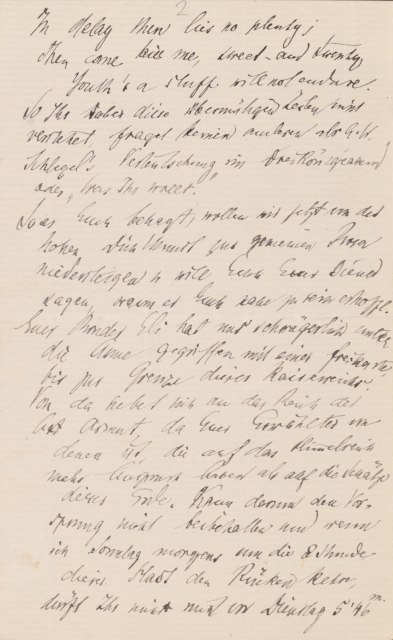 2
In delay there lies no plenty;
Then come kiss me, sweet-and twenty,
Youth's a stuff will not endure.
So Ihr aber diese übermütigen Zeilen nicht
verstehet, fraget keinen anderen als Geh.
Schlegel's Verdeutschung im Dreikönigsabend
oder "Was Ihr wollt."
So es Euch behagt, wollen wir jetzt von der
hohen Dichtkunst zur gemeinen Prosa
niedersteigen u will Euch Euer Diener
sagen, wann er Euch nahe zu sein erhofft.
Euer Bruder Eli hat mir schwägerlich unter
die Arme gegriffen mit einer Freikarte
bis zur Grenze dieses Kaiserreichs.
Von da hebet sich an das Reich der
Armut, da Euer Erwählter von
denen ist, die auf das Himmelreich
mehr Anspruch haben als auf die Schätze
dieser Erde. Kann darum den Vor-
sprung nicht beibehalten und wenn
ich Sonntag morgens um die 8 Stunde
dieser Stadt den Rücken kehre,
dürft Ihr mich erst Dienstag 5'46 m.